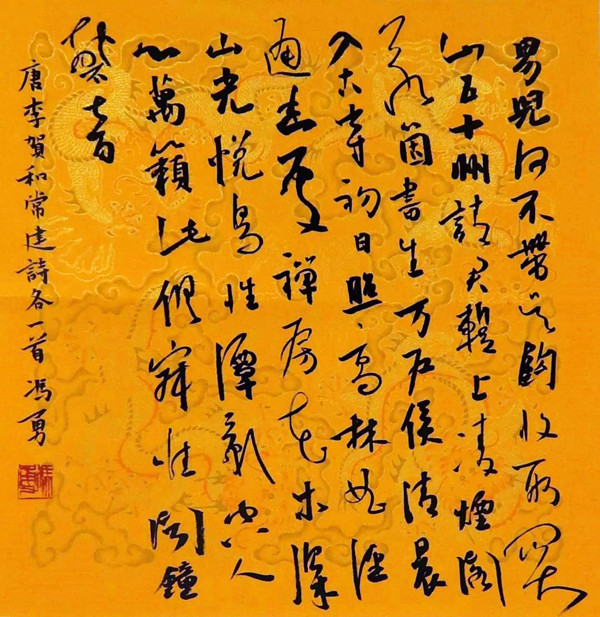 男兒何不帶吳鉤收取關
山五十州請君暫上凌煙閣
若箇書生万戶侯清晨
入古寺初日照高林曲徑
通幽處禪房花木深
山光悅鳥性潭影空人
心萬籟此俱寂惟聞鐘
磬音
唐李賀和常建詩各一首馮勇